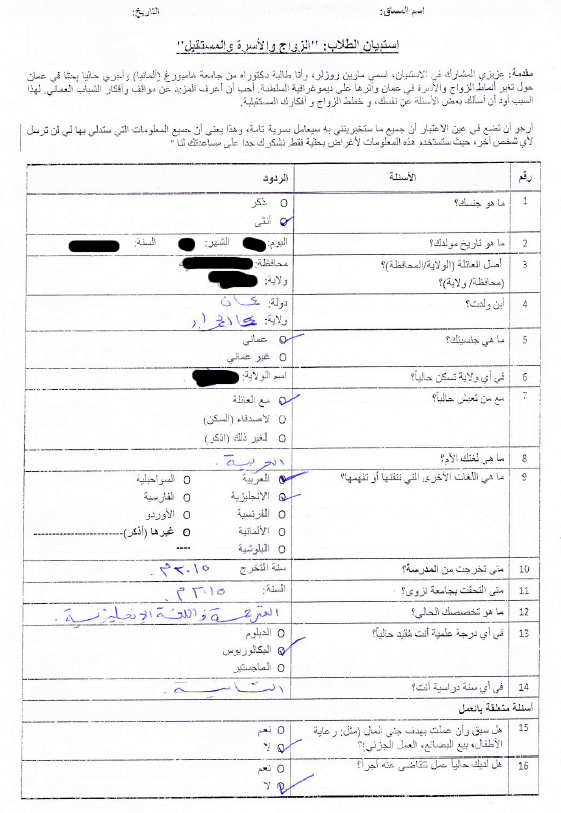 اسم المساق:
التاريخ:
استبيان الطلاب: "الزواج والأسرة والمستقبل"
مقدمة: عزيزي المشارك في الاستبيان، اسمي مارين روزلر، وأنا طالبة دكتوراه من جامعة هامبورغ (ألمانيا) وأجري حاليا بحثا في عمان
حول تغير أنماط الزواج والأسرة في عمان وأثرها على ديموغرافية السلطنة. أحب أن أعرف المزيد عن مواقف وأفكار الشباب العماني. لهذا
السبب أود أن أسألك بعض الأسئلة عن نفسك، و خطط الزواج و أفكارك المستقبلية.
أرجو أن تضع في عين الاعتبار أن جميع ما ستخبرينني به سيعامل بسرية تامة، وهذا يعني أن جميع المعلومات التي ستدلي بها لي لن ترسل
لأي شخص آخر، حيث ستستخدم هذه المعلومات لأغراض بحثية فقط. نشكرك جدا على مساعدتك لنا "
رقم الأسئلة الردود
1 ما هو جنسك؟ ذكر
أنثى
2 ما هو تاريخ مولدك؟ اليوم: الشهر: السنة:
3 أصل العائلة (الولاية/المحافظة)؟ محافظة:
(محافظة/ ولاية)؟ ولاية:
4 أين ولدت؟ دولة: عمان
ولاية: الحمراء
5 ما هي جنسيتك؟ عماني
غير عماني
6 في أي ولاية تسكن حالياً؟ اسم الولاية:
7 مع من تعيش حالياً؟ مع العائلة
لأصدقاء (السكن)
لغير ذلك (اذكر)
8 ما هي لغتك الأم؟ العربية.
9 ما هي اللغات الأخرى التي تتقنها أو تفهمها؟ العربية السواحيلية
الانجليزية الفارسية
الفرنسية الأوردو
الألمانية غيرها (أذكر)-----------------------
البلوشية ----
10 متى تخرجت من المدرسة؟ سنة التخرج ٢٠١٥م.
11 متى التحقت بجامعة نزوى؟ السنة: ٢٠١٥م.
12 ما هو تخصصك الحالي؟ الترجمة واللغة الإنجليزية.
13 في أي درجة علمية أنت مُقيد حالياً؟ الدبلوم
البكالوريوس
الماجستير
14 في أي سنة دراسية أنت؟
أسئلة متعلقة بالعمل
15 هل سبق وأن عملت بهدف جني المال (مثل: رعاية نعم
الأطفال، بيع البضائع، العمل الجزئي)؟ لا
16 هل لديك حالياً عمل تتقاضى عنه أجراً؟ نعم
لا